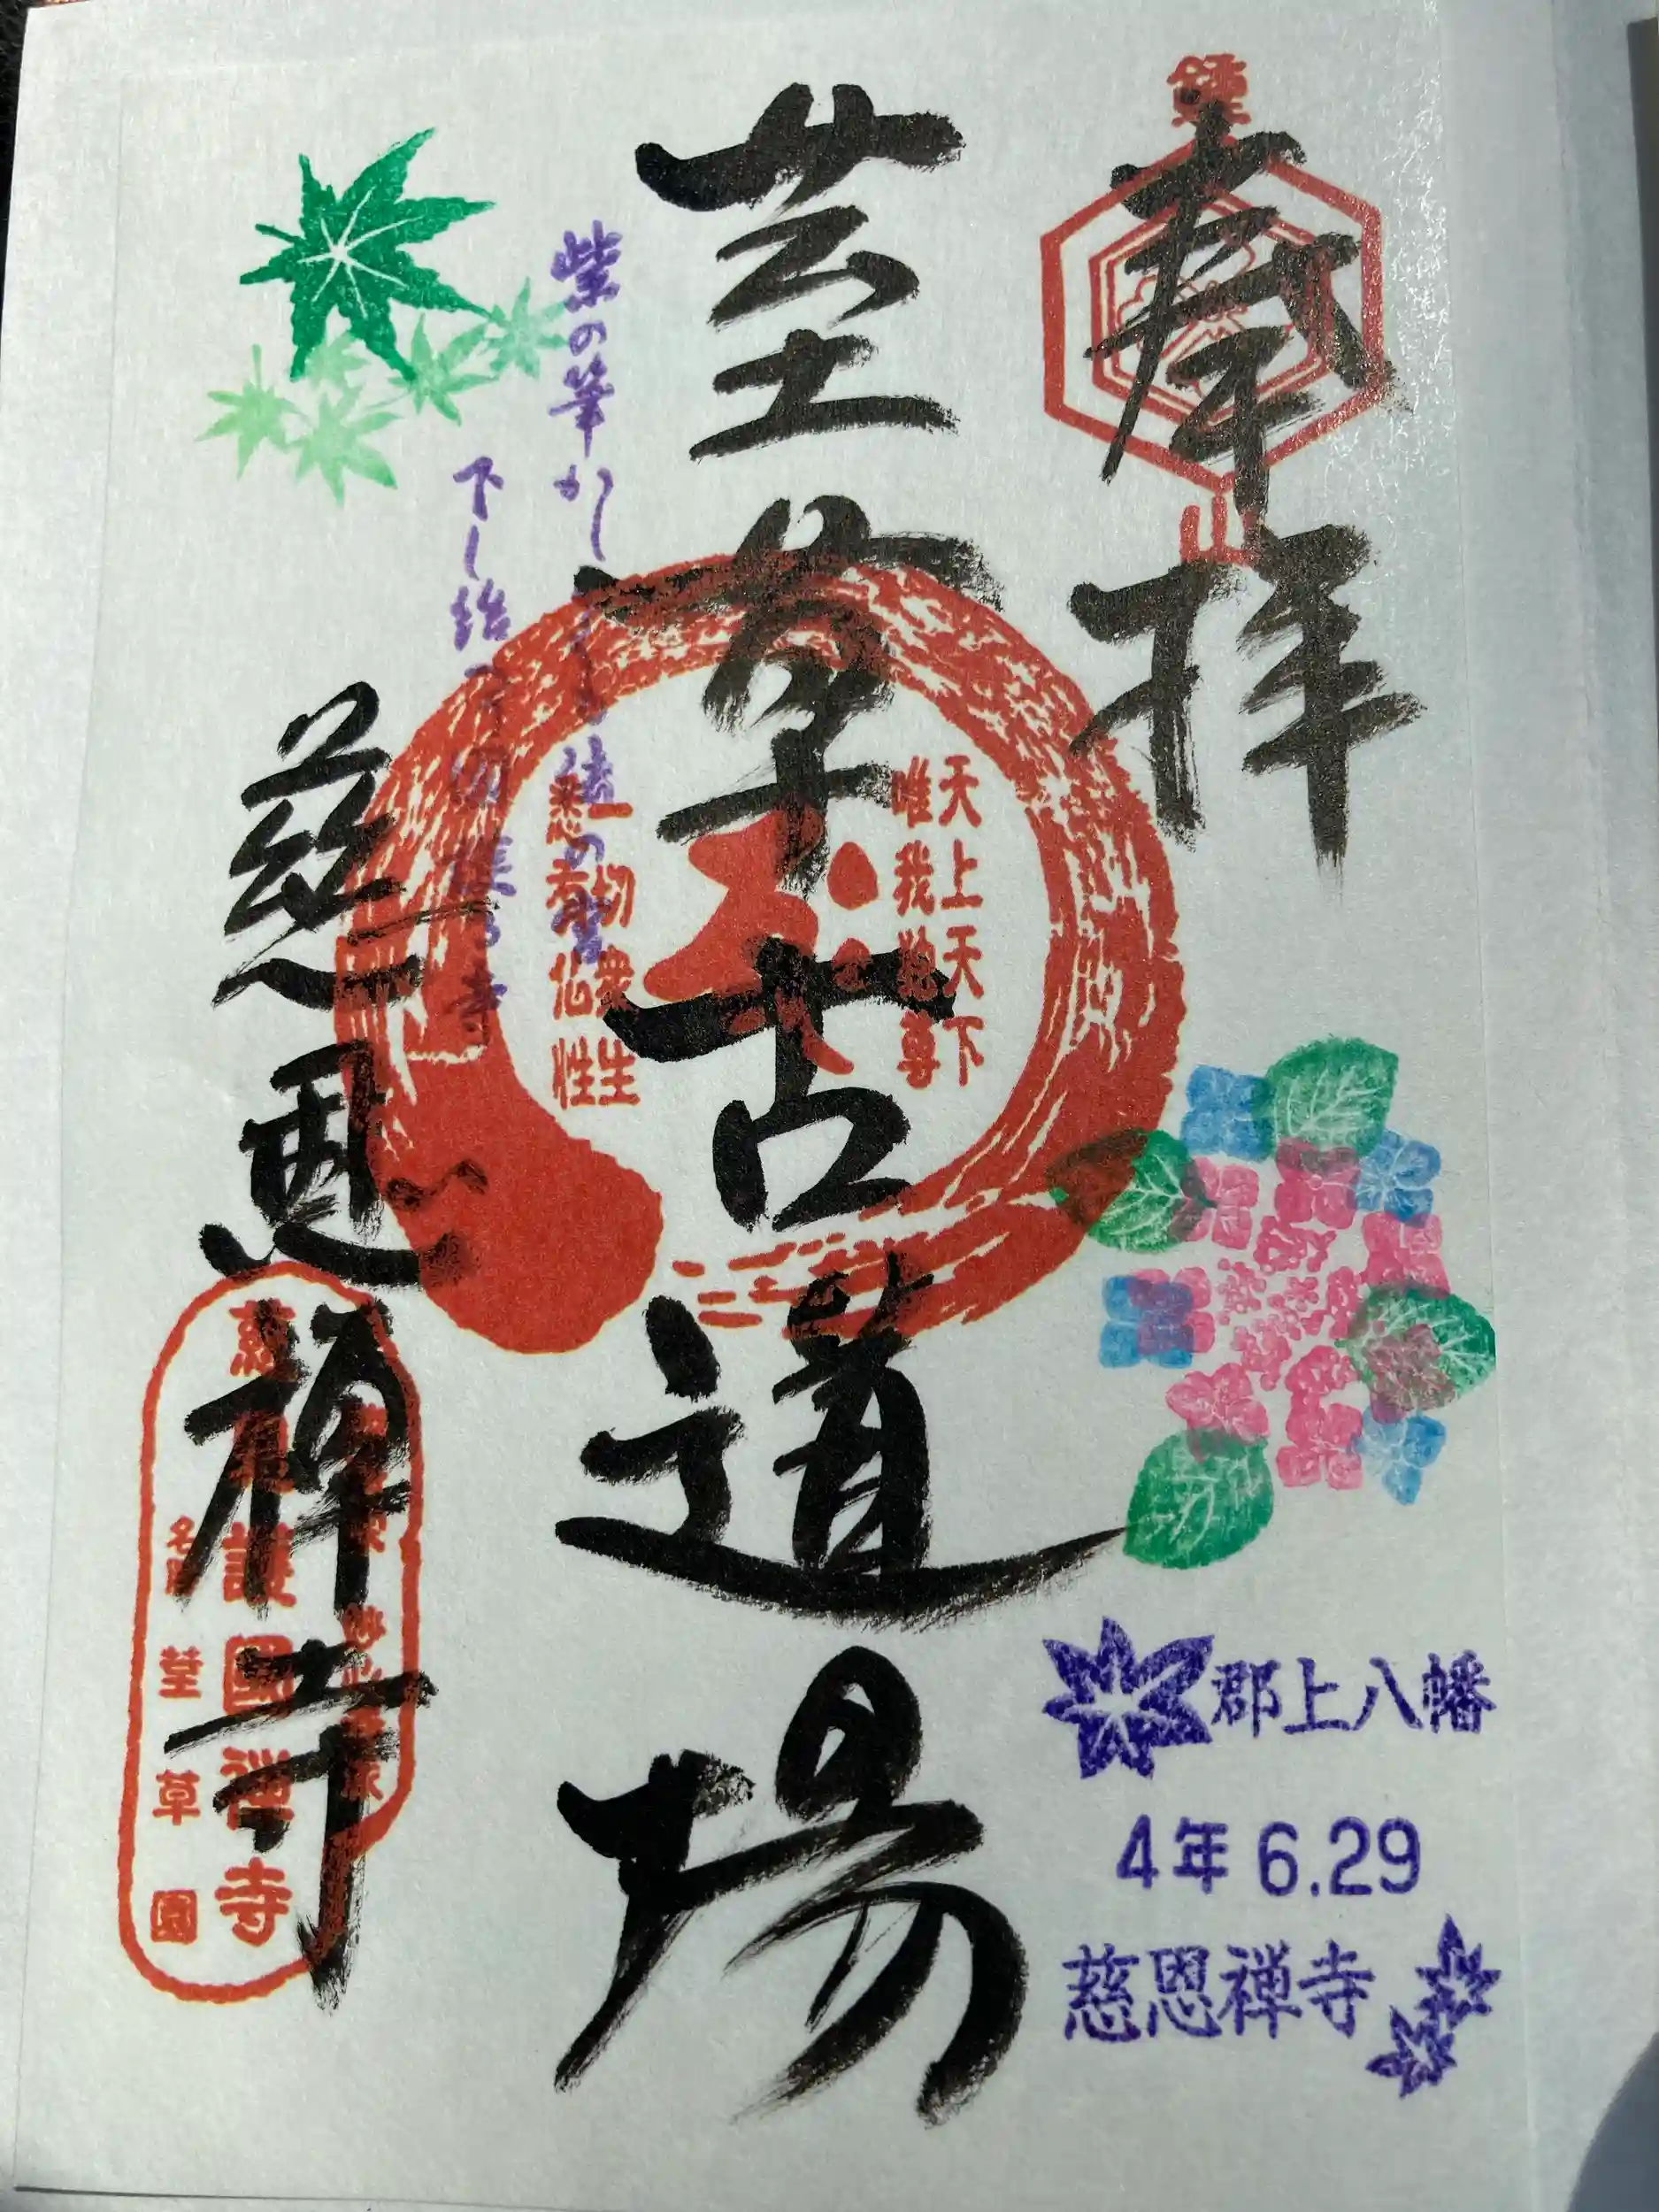 鐘
山
奉拝
荎草古道場
天上天下
唯我独尊
一切衆生
悉有仏性
紫の筆
下し給
慈恩禅寺
慈恩護國禅寺
名勝 荎草園
郡上八幡
4年6.29
慈恩禅寺